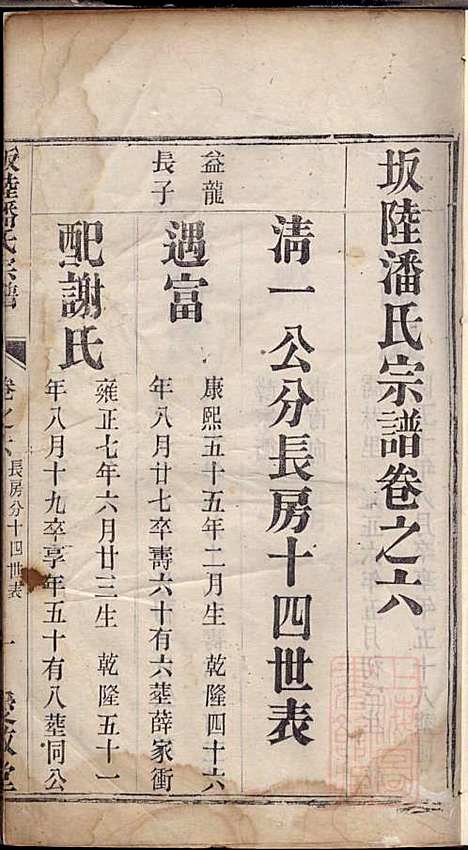 坂陸潘氏宗譜卷之六
清一公分長房十四世表
益龍
長子
遇富
康熙五十五年二月生 乾隆四十六
年八月廿七卒壽六十有六塟薛家衝
配謝氏
雍正七年六月廿三生 乾隆五十一
年八月十九卒享年五十有八塟同公
坂陸潘氏宗譜
卷之六
長房分十四世表
一
堂